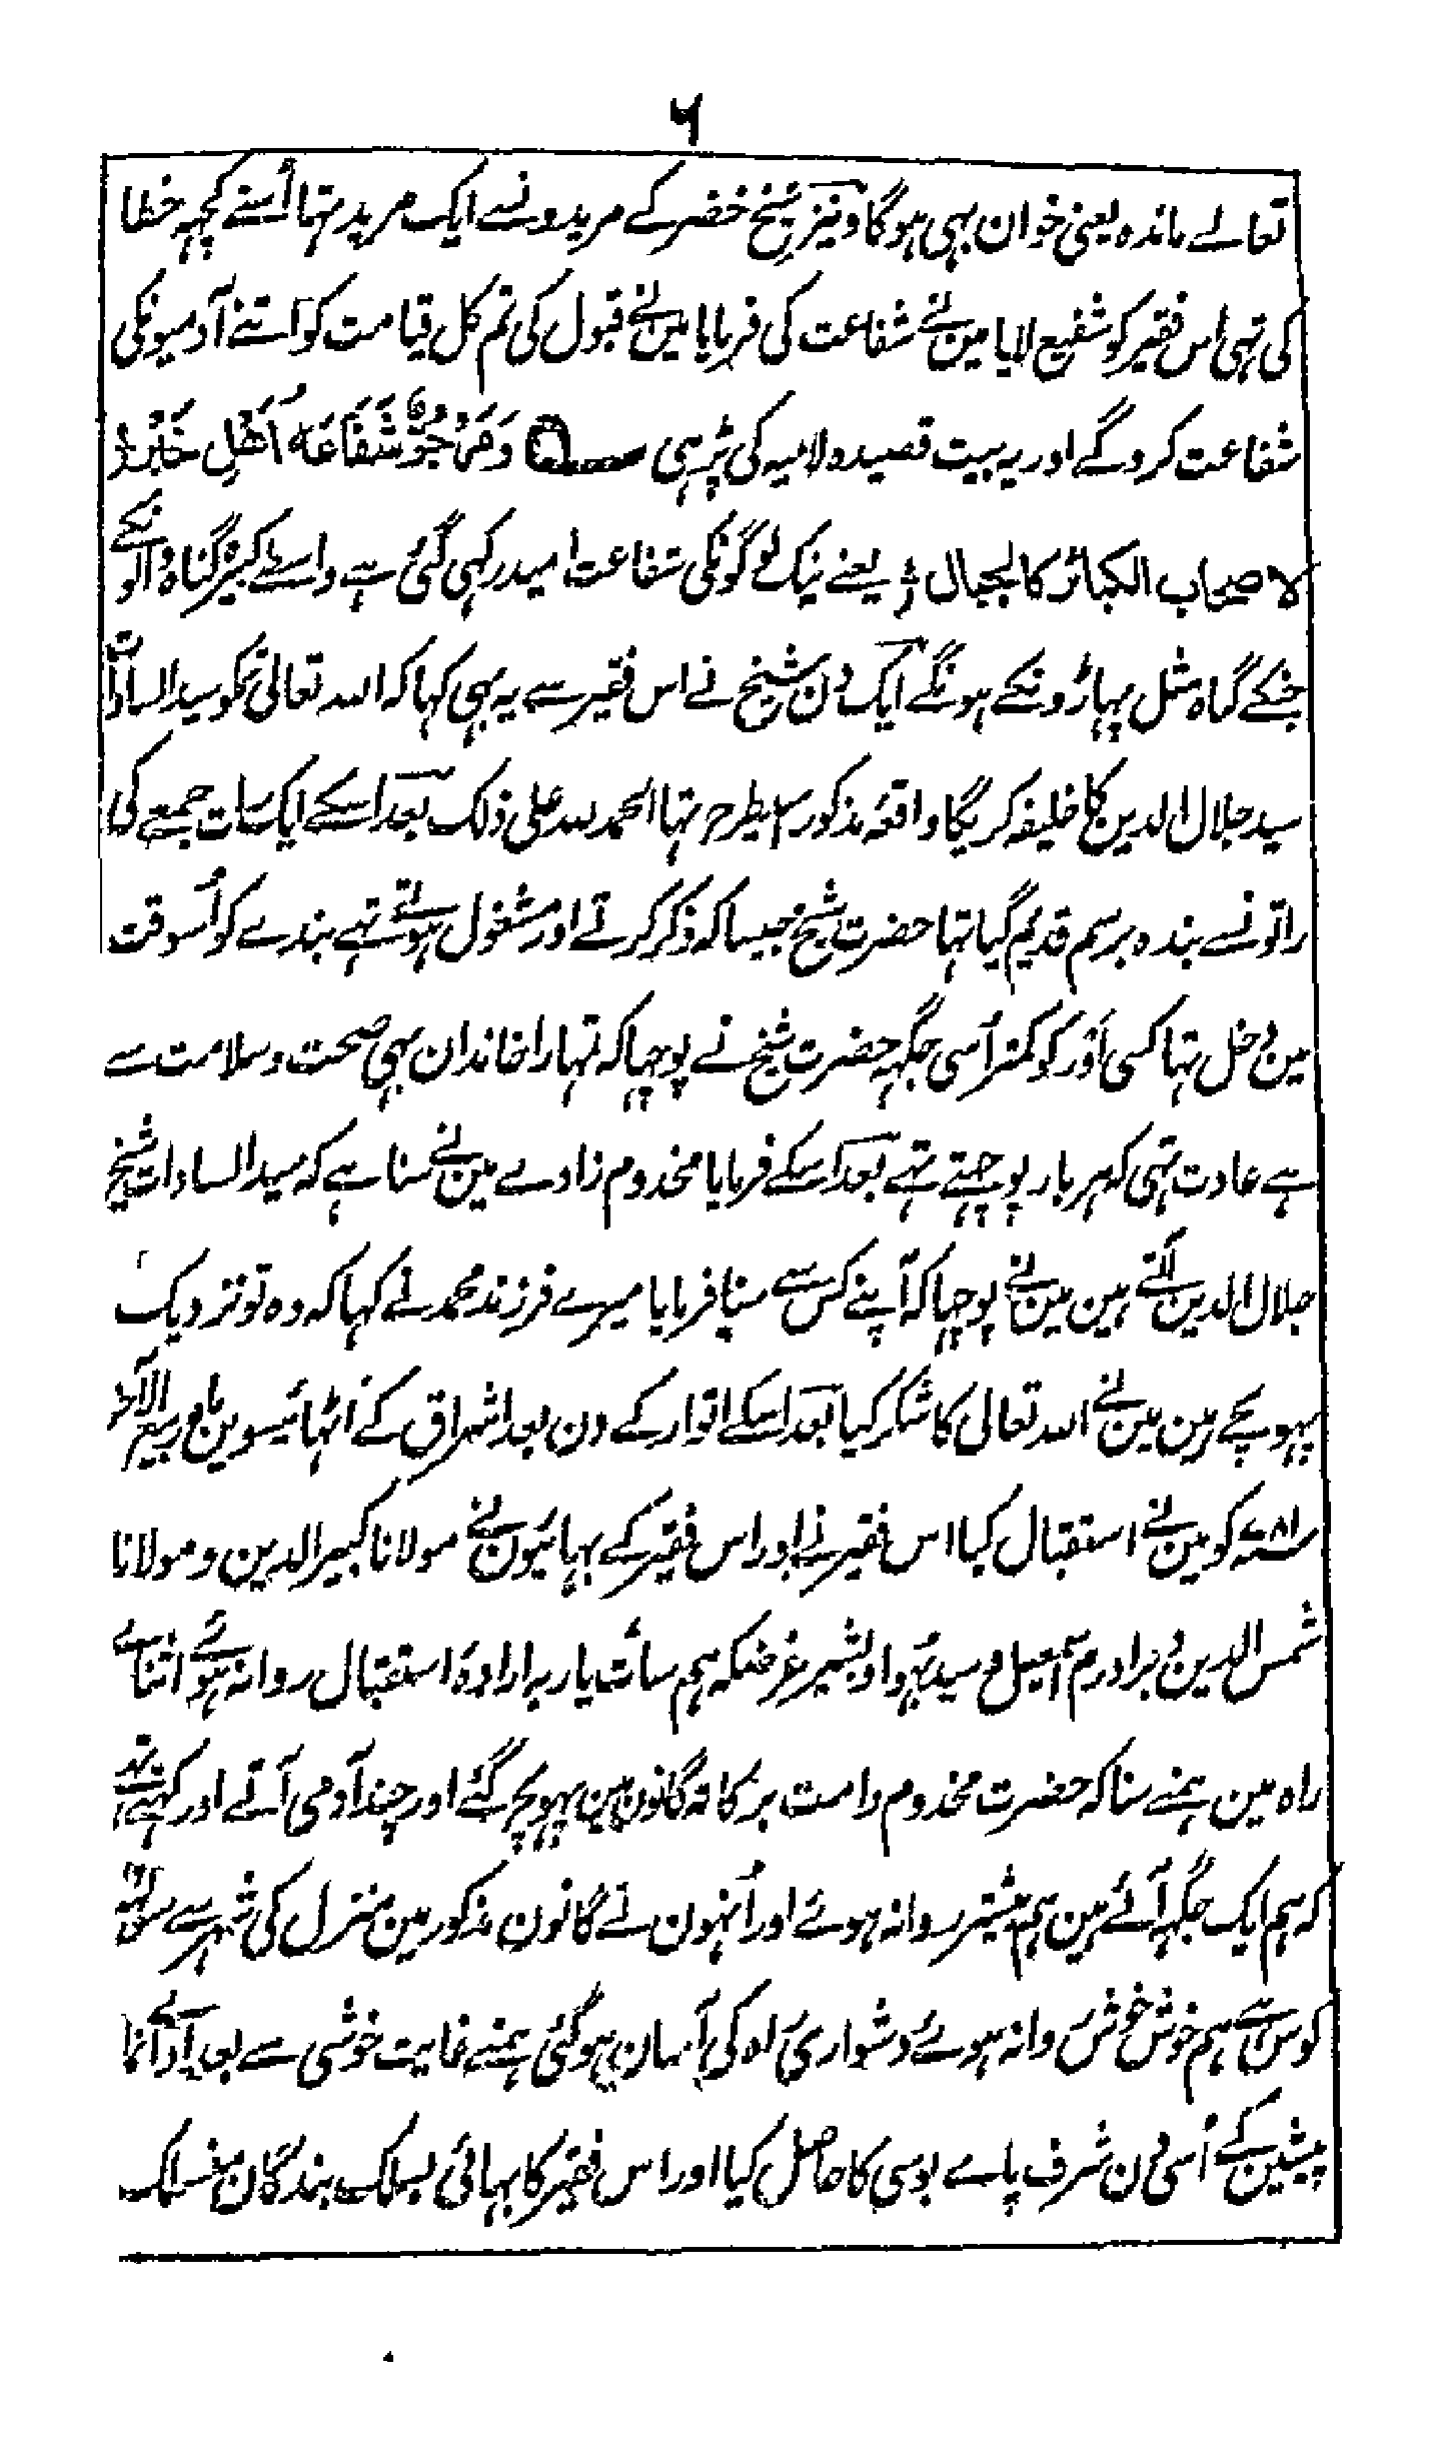 ۶
تعالے مائدہ یعنی خوان بہی ہوگا ونیز شیخ خضر کے مریدونسے ایک مرید تہا اُسنے کچہہ خطا
کی تہی اس فقیر کو شفیع لایا مین نے شفاعت کی فرمایا مین نے قبول کی تم کل قیامت کو اتنے آدمیونکی
شفاعت کروگے اور یہ بیت قصیدہ لامیہ کی پڑہی وَمَرْجُوٌّ شَفَاعَةُ اَهْلِ خَيْرٍ
لاصحاب الکبائر کالجبال یعنے نیک لوگونکی شفاعت امید رکہی گئی ہے واسطے کبیرہ گناہ والونکے
جنکے گناہ مثل پہاڑونکے ہونگے ایک دن شیخ نے اس فقیر سے یہ بہی کہا کہ اللہ تعالیٰ تمکو سید السادات
سید جلال الدین کا خلیفہ کریگا واقعہ مذکور اسیطرح تہا الحمد للہ علی ذلک بعد اسکے ایک رات جمعے کی
راتونسے بندہ برسم قدیم گیا تہا حضرت شیخ جیسا کہ ذکر کرتے اور مشغول ہوتے تہے بندے کو اُسوقت
مین دخل تہا کسی اَور کو کمتر اُسی جگہہ حضرت شیخ نے پوچہا کہ تمہارا خاندان بہی صحت و سلامت سے
ہے عادت تہی کہ ہر بار پوچہتے تہے بعد اسکے فرمایا مخدوم زادے مین نے سنا ہے کہ سید السادات شیخ
جلال الدین آتے ہین مین نے پوچہا کہ آپنے کس سے سنا فرمایا میرے فرزند محمد نے کہا کہ وہ تو نزدیک
پہونچے ہین مین نے اللہ تعالی کا شکر کیا بعد اسکے اتوار کے دن بعد اشراق کے اُٹہائیسوین ماہ ربیع الآخر
کو مین نے استقبال کیا اس فقیر نے اور اس فقیر کے بہائیون نے مولانا کبیر الدین و مولانا
شمس الدین و برادرم و سید و بشیر غرضکہ ہم سات یار بارادہ استقبال روانہ ہوئے اثنائے
راہ مین ہمنے سنا کہ حضرت مخدوم دامت برکاتہ گانون مین پہونچ گئے اور چند آدمی آتے اور کہتے تہے
کہ ہم ایک جگہہ آئے ہین ہم پیشتر روانہ ہوئے اور اُنہون نے گانون مذکور مین منزل کی شہر سے
کوس ہے ہم خوش خوش روانہ ہوئے دشواری راہ کی آسان ہوگئی ہمنے غایت خوشی سے بعد
پیشین کے اُسی دن شرف پاے بوسی کا حاصل کیا اور اس فقیر کا بہائی بسلک بندگان منسلک